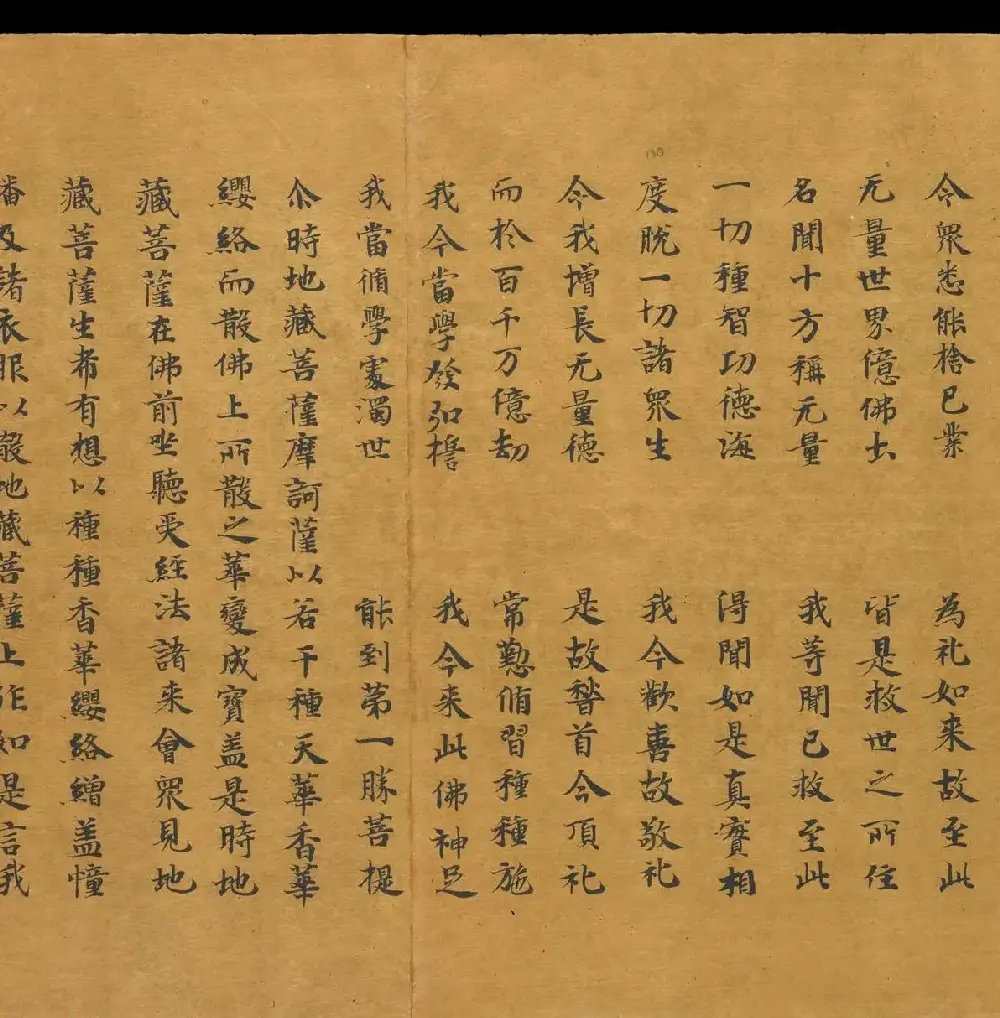 令衆悉能捨已業 為礼如来故至此
无量世界億佛土 皆是救世之所住
名聞十方稱无量 我等聞已故至此
一切種智功德海 得聞如是真實相
度脱一切諸衆生 我今歡喜故敬礼
令我增長无量德 是故稽首今頂礼
而於百千万億劫 常懃脩習種種施
我今當學發弘擔 我今来此佛神足
我當脩學處濁世 能到第一勝菩提
尒時地藏菩薩摩訶薩以若干種天華香華
纓絡而散佛上所散之華變成寶盖是時地
藏菩薩在佛前坐聽受經法諸来會衆見地
藏菩薩生希有想以種種香華纓絡繒盖幢
幡及諸衣服以散地藏菩薩上作如是言我